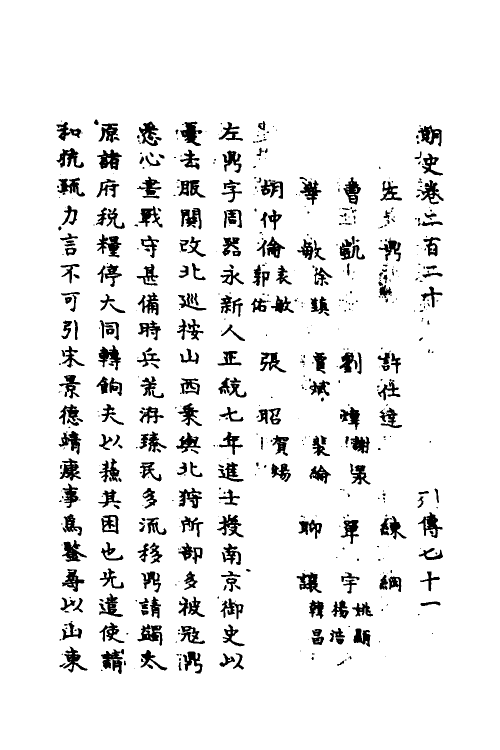 明史卷二百二十 列傳七十一
左鼎 許仕達 練綱
曹凱 劉煒 謝杲 單宇 姚顯 楊浩
華敏 徐鎮 賈斌 裴綸 聊讓 韓昌
胡仲倫 袁敏 郭佑 張昭 賀煬
左鼎字周器永新人正統七年進士授南京御史以
憂去服闋改北巡按山西乘輿北狩所部多被寇鼎
悉心畫戰守甚備時兵荒洊臻民多流移鼎請蠲太
原諸府稅糧停大同轉餉夫以蘇其困也先遣使請
和抗疏力言不可引宋景德靖康事為鑒尋以山東